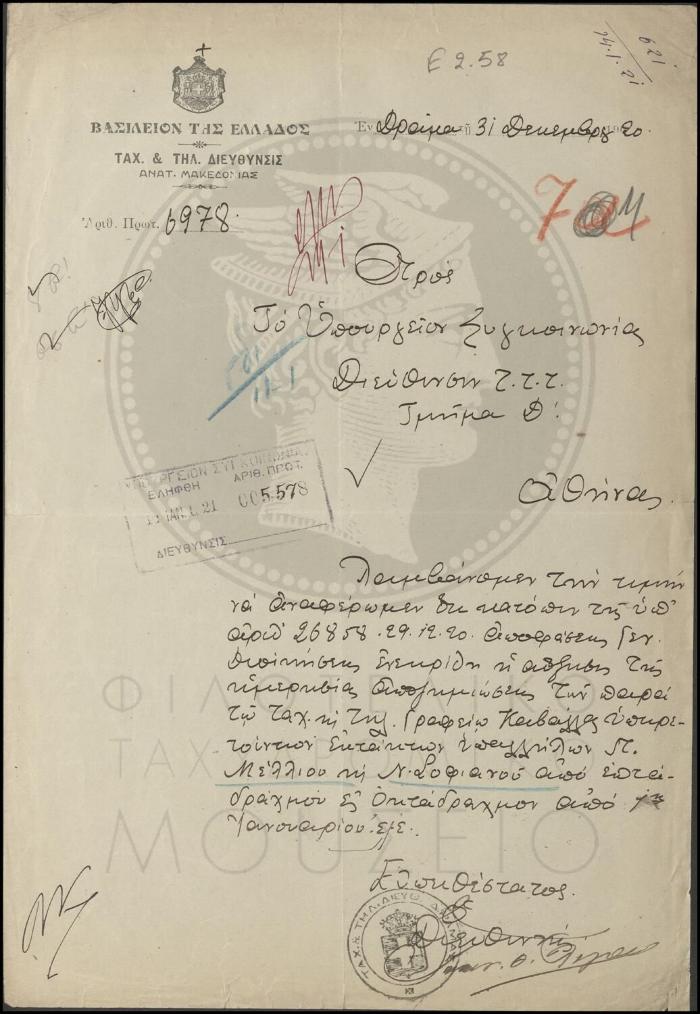 Ε 2.58
621
14.1.21
ΒΑΣΙΛΕΙΟΝ ΤΗΣ ΕΛΛΑΔΟΣ
ΤΑΧ. & ΤΗΛ. ΔΙΕΥΘΥΝΣΙΣ
ΑΝΑΤ. ΜΑΚΕΔΟΝΙΑΣ
Ἐν Δράμα τῇ 31 Δεκεμβρ. 20
Ἀριθ. Πρωτ. 6978.
Πρὸς
Τό Ὑπουργεῖον Συγκοινωνίας
Διεύθυνσιν Τ.Τ.Τ.
Τμῆμα Δ'.
Ἀθήνας
ΥΠΟΥΡΓΕΙΟΝ ΣΥΓΚΟΙΝΩΝΙΑΣ
ΕΛΗΦΘΗ ΑΡΙΘ. ΠΡΩΤ.
11 ΙΑΝ. 21 005.578
ΔΙΕΥΘΥΝΣΙΣ
Λαμβάνομεν τήν τιμήν
νά ἀναφέρωμεν ὅτι κατόπιν τῆς ὑπ'
ἀριθ. 26858.29.12.20. ἀποφάσεως Γεν.
Διοικήσεως ἐνεκρίθη ἡ αὔξησις τῆς
ἡμερησίας ἀποζημιώσεως τῶν παρά
τῷ ταχ. κή τηλ. Γραφείῳ Καβάλλας ὑπηρε-
τούντων ἐκτάκτων ὑπαλλήλων Π.
Μέλλιου κή Ν. Σοφιανοῦ ἀπό ἑπτά-
δραχμου εἰς ὀκτάδραχμον ἀπό 1ης
Ἰανουαρίου ἐ.ἔ.
Εὐπειθέστατος
Ὁ
Διευθυντής
ΤΑΧ. & ΤΗΛ. ΔΙΕΥΘ. ΔΡΑΜΑΣ
ΦΙΛΟΤΕΛΙΚΟ
ΤΑΧΥΔΡΟΜΙΚΟ
ΜΟΥΣΕΙΟ